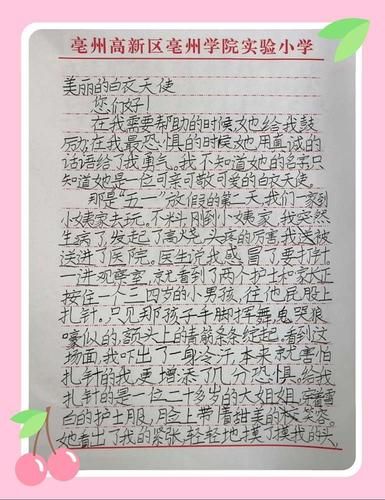 亳州高新区亳州学院实验小学
美丽的白衣天使
您们好!
在我需要帮助的时候,她给我鼓
厉,在我最恐惧的时候,她用真诚的
话语给了我勇气。我不知道她的名字,只
知道她是一位可亲可敬可爱的白衣天使。
那是“五一”放假的第二天,我们一家到
小姨家去玩。不料刚到小姨家,我突然
生病了,发起了高烧,头疼的厉害,我被
送进了医院。医生说我感冒了要打针。
一进观察室,就看到了两个护士和家长正
按住一个三四岁的小男孩,往他屁股上
扎针。只见那孩子手脚挥舞,鬼哭狼
嚎似的,额头上的青筋条条绽起。看到这
场面,我吓出了一身冷汗,本来就害怕
扎针的我,更增添了几分恐惧。给我
扎针的是一位二十多岁的大姐姐,穿着雪
白的护士服,脸上带着甜美的笑容。
她看出了我的紧张,轻轻地摸了摸我的头,